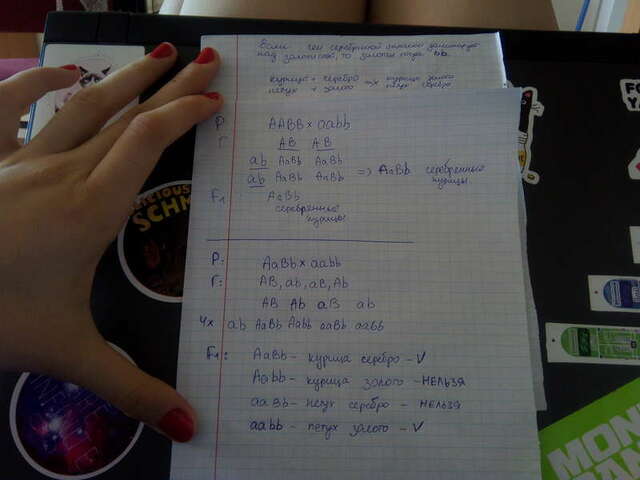 Если ген серебристой окраски доминирует
над золотистой, то золотой петух bb.
курица + серебро => курица золото
петух + золото петух серебро
P AABB × aabb
Г AB AB
ab AaBb AaBb
ab AaBb AaBb => AaBb серебренные курицы
F1 AaBb
серебренные
курицы
P: AaBb × aabb
Г: AB, ab, aB, Ab
AB Ab aB ab
4x ab AaBb Aabb aaBb aabb
F1: AaBb - курица серебро - V
Aabb - курица золото - НЕЛЬЗЯ
aaBb - петух серебро - НЕЛЬЗЯ
aabb - петух золото - V
ICIOUS
SCHM
MON